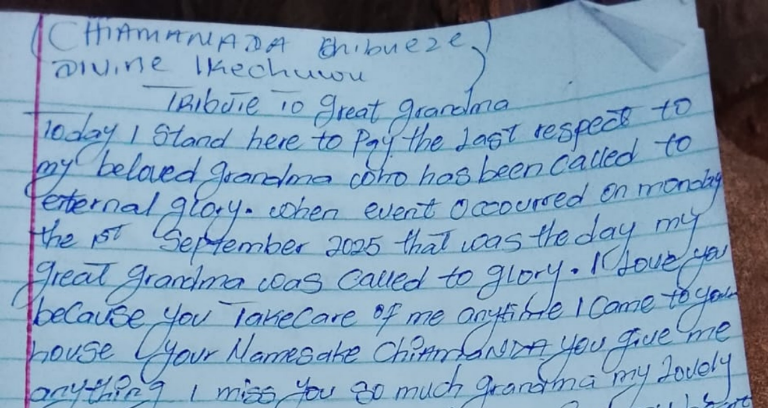 (CHIAMANADA Chibueze)
Divine Ikechuwu
Tribute To great grandma
Today I Stand here to Pay the last respect to
my beloved grandma who has been called to
external glory. when event occourred on monday
the 1st September 2025 that was the day my
great grandma was called to glory. I love you
because you Takecare of me anytime I come to your
house your Namesake CHIAMANDA you give me
anything I miss you so much grandma my lovely